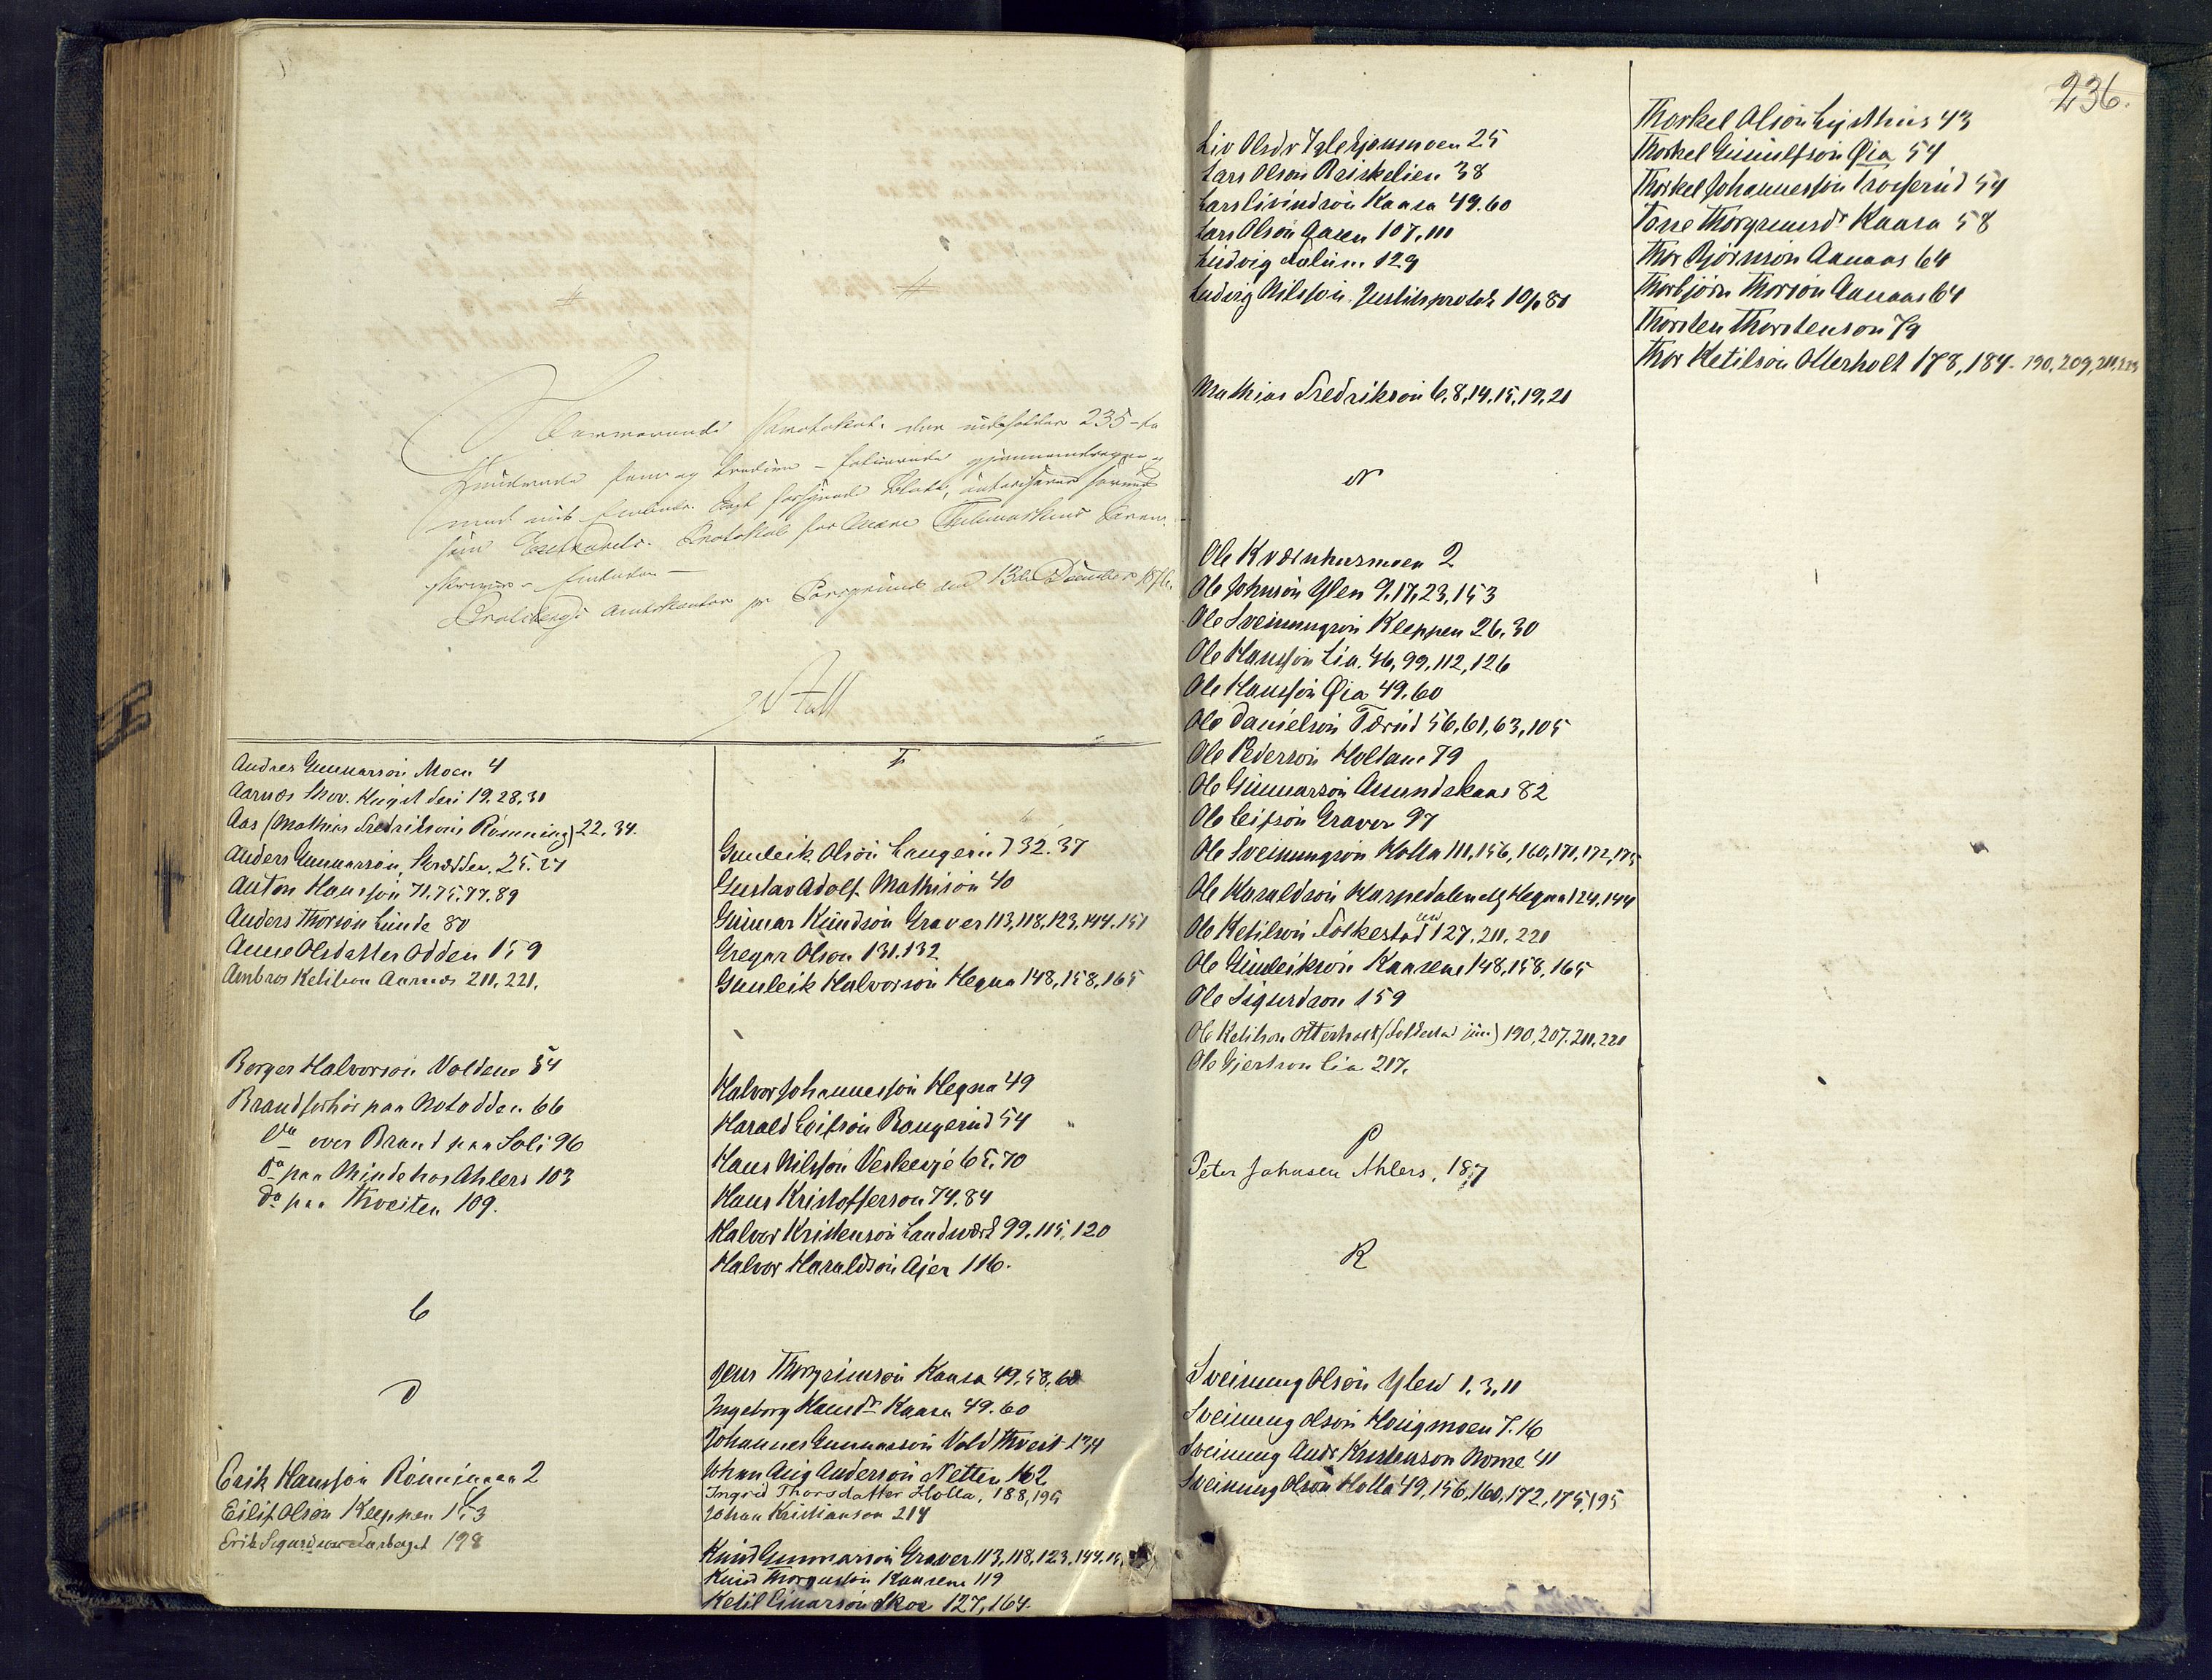 Nærværende Protokol, der indeholder 235 - to
Hundrede fem og tredive - folierede gjennemdragne og
med mit Embeds Segl forsynede Blade, autoriseres herved
som Extrarets-Protokol for Nedre Thelemarkens Soren-
skriver-Embede. -
Bratsberg Amtskontor pr Porsgrund den 13de December 1876.
Andres Gunnarson Moen 4
Aarnes Skov. 19. 28. 30
Aas (Mathias Fredriksons Rönning) 22. 34.
Anders Gunnarson, Skrædder, 25. 27
Anton Hansson 71. 75. 77. 89
Anders Thorson Linde 80
Anne Olsdatter Odden 159
Ambros Ketilson Aarnes 211, 221.
Borger Halvorson Voldene 54
Brandforhör paa Notodden 66
Do over Brand paa Soli 96
do paa Minde hos Ahlers 103
do paa Thveiten 109.
C
D
Erik Hansson Rönningen 2
Eilif Olson Kleppen 153
Erik Sigurdson 198
F
Gunleik Olson Laugerud 32. 37
Gustav Adolf Mathison 40
Gunnar Knudson Graver 113, 118, 123, 144. 151
Gregar Olson 131. 132
Gunleik Halvorson Hegna 148, 158, 165
Halvor Johannesson Hegna 49
Harald Leifson Bangerud 54
Hans Nilsson Verkensje 65. 70
Hans Kristofferson 74. 84
Halvor Kristenson Landsværk 99. 115, 120
Halvor Haraldson Ajer 116.
Jens Thorgrimson Kaasa 49, 58, 60
Ingeborg Hansdr Kaasa 49. 60
Johannes Gunnarson Vold Thveit 134
Johan Aug Anderson Netten 162
Ingrid Thorsdatter Holla, 188, 195
Johan Kristianson 214
Knud Gunnarson Graver 113, 118, 123, 144.
Knud Thorgusson Kaasene 119
Ketil Einarson Skoe 127, 164.
236.
Liv Olsdr 25
Lars Olson Reiskelien 38
Lars Eivindson Kaasa 49. 60
Lars Olson Aasen 107. 111
Ludvig Julium 129
Ludvig Nilsson. Justitsprotok 10/6 80
Mathias Fredrikson 6. 8, 14. 15, 19, 21
N
Ole Kværnhusmoen 2
Ole Johnson Ylen 9, 17, 23, 153
Ole Sveinungson Kleppen 26. 30
Ole Hansson Lia. 46, 99, 112, 126
Ole Hansson Øia 49. 60
Ole Danielson Tærud 56, 61, 63, 105
Ole Pederson Holtane 79
Ole Gunnarson Amundskaas 82
Ole Leifson Graver 97
Ole Sveinungson Holla 111, 156, 160, 171, 172, 175
Ole Haraldson Harpedalen elg Hegna 124, 144
Ole Ketilson Folkestad jun 127, 211, 221
Ole Gunleikson Kaasene 148, 158, 165
Ole Sigurdson 159
Ole Ketilson Otterholt (Folkestad jun) 190, 207. 211, 221
Ole Gjertson Lia 217.
P
Peter Johnsen Ahlers, 187
R
Sveinung Olson Ylen 1, 3, 11
Sveinung Olson Honigmoen 7. 16
Sveinung Andr Kristenson Rome 41
Sveinung Olson Holla 49, 156, 160, 172, 175, 195
Thorkel Olson 43
Thorkel Gunulfson Øia 54
Thorkel Johannesson Troserud 54
Torre Thorgrimsdr Kaasa 58
Thor Björnson Aanaas 64
Thorbjörn Thorson Aanaas 64
Thorsten Thorstenson 79
Thor Ketilson Otterholt 178, 184. 190, 209, 211, 223